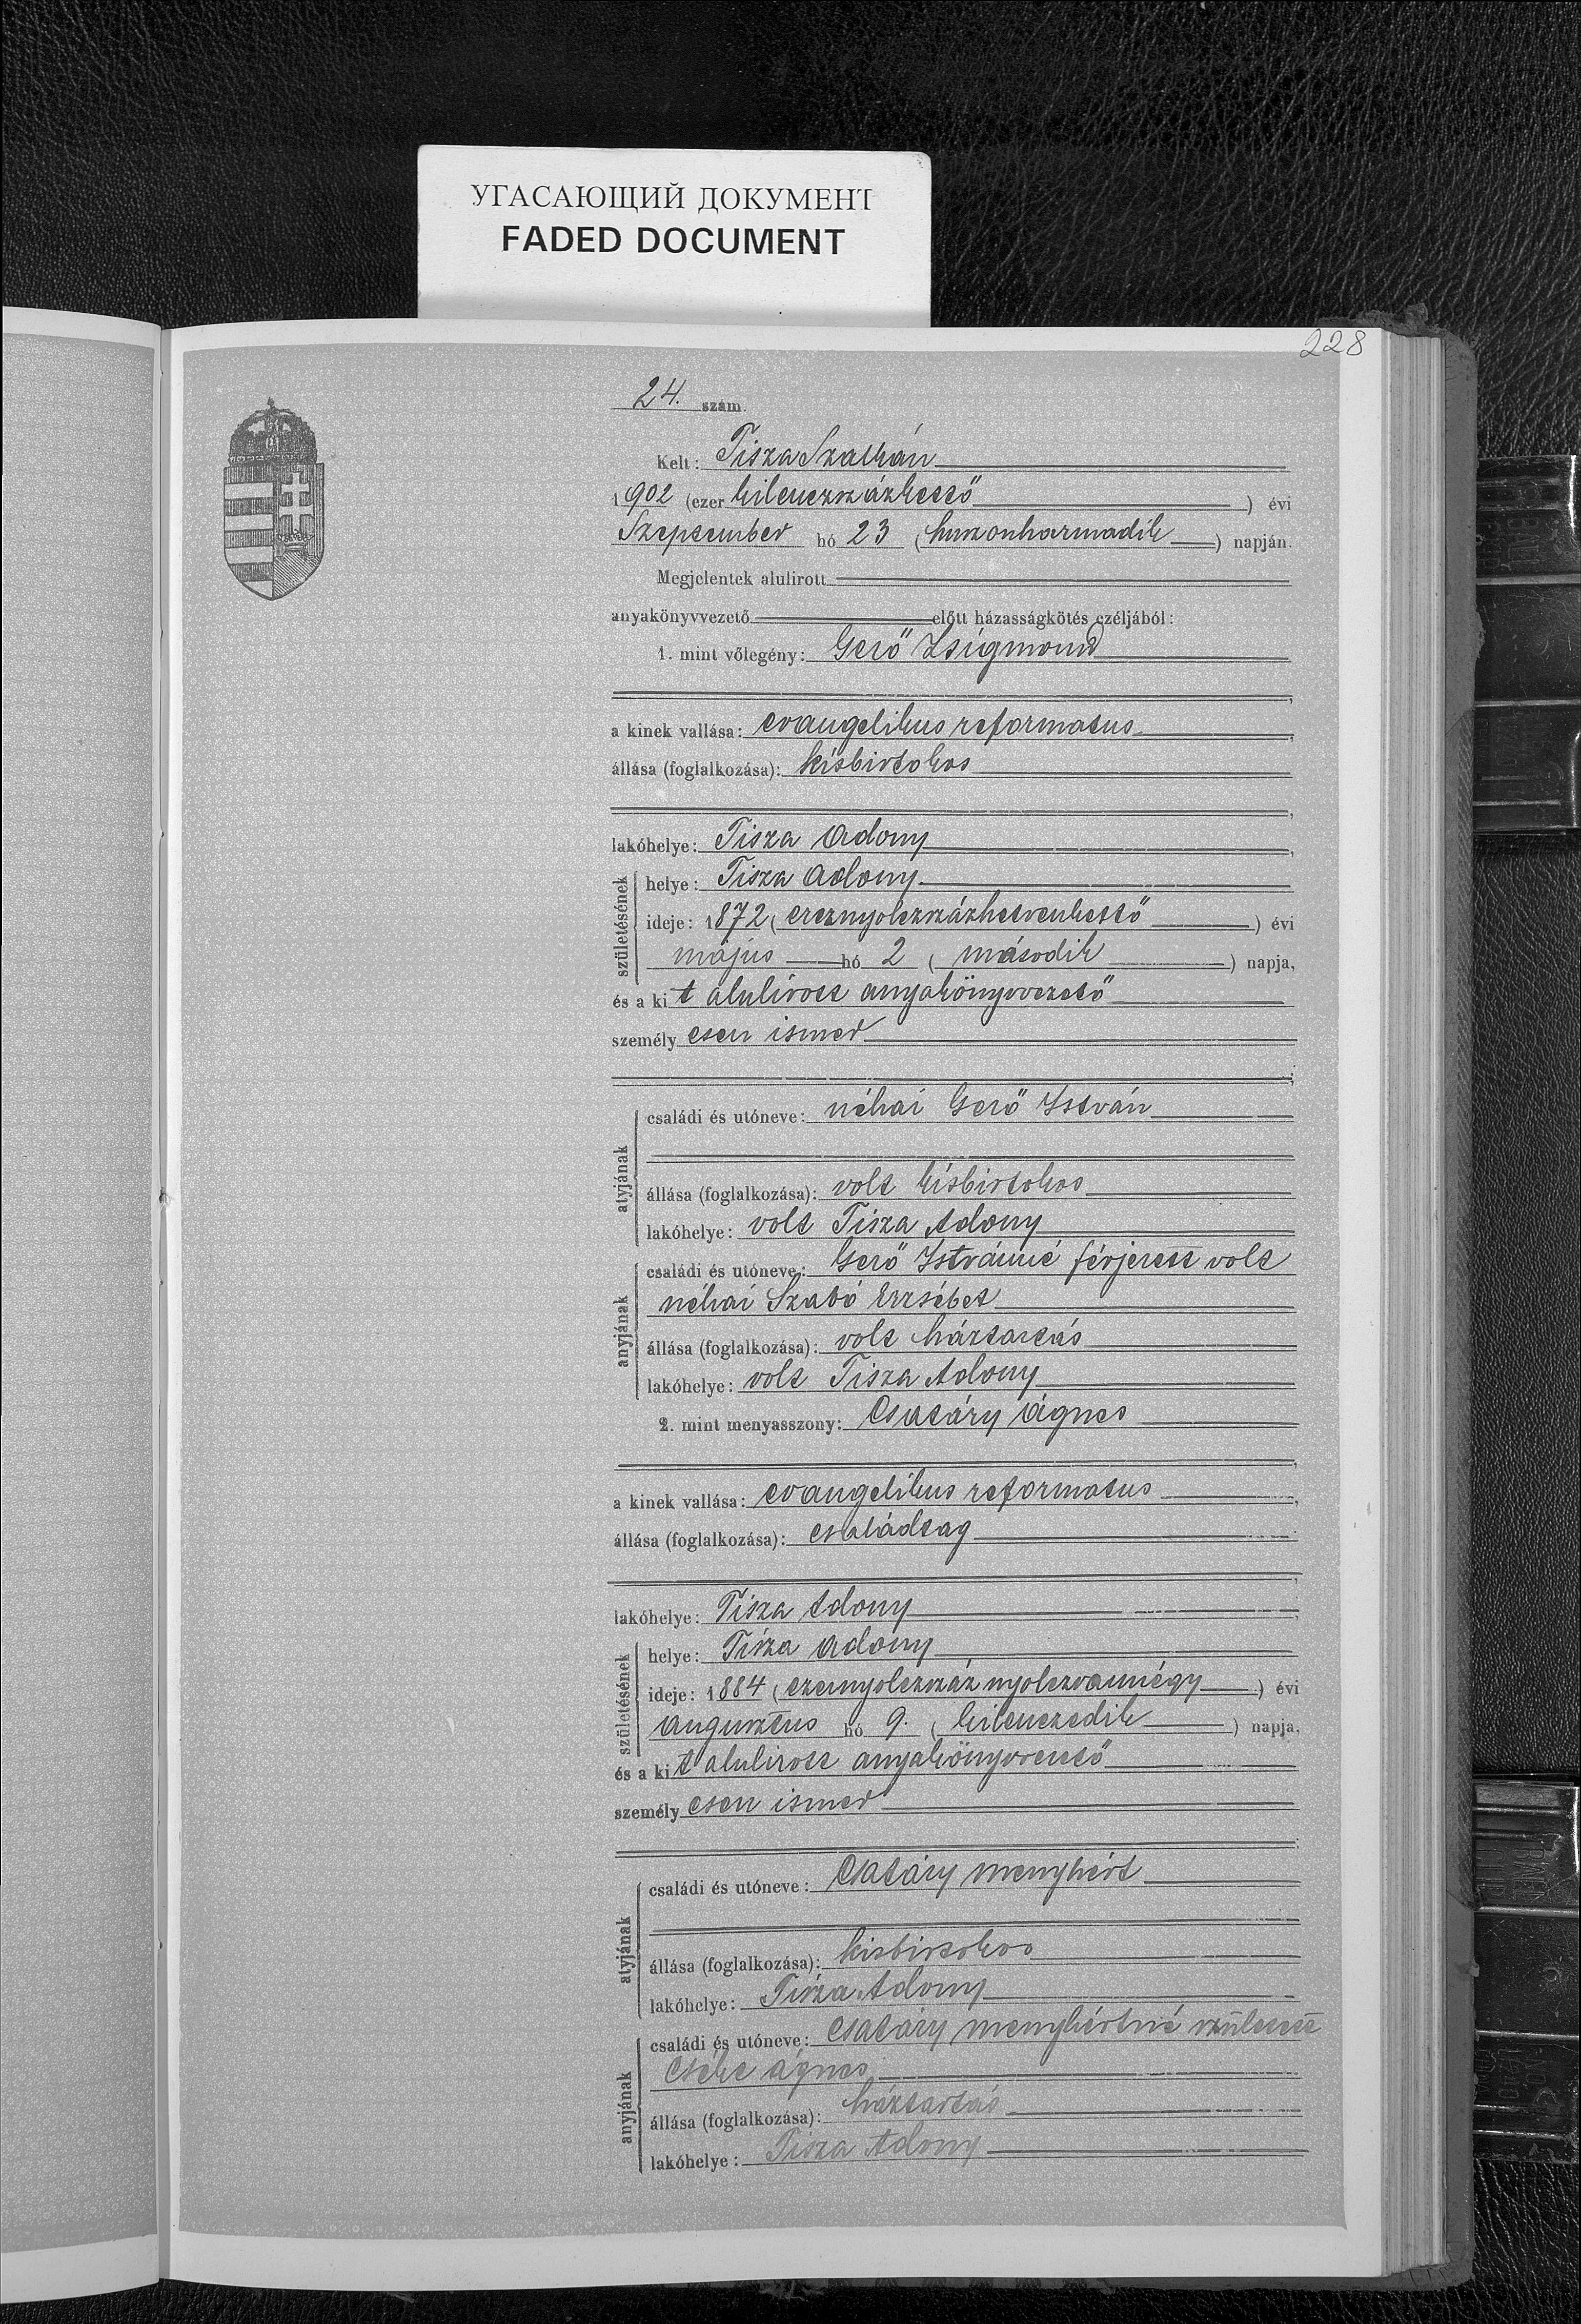 УГАСАЮЩИЙ ДОКУМЕНТ
FADED DOCUMENT
228
24. szám.
Kelt: Tisza Szalkán
1902 (ezer kilenczszázkettő) évi
Szeptember hó 23 (huszonharmadik) napján.
Megjelentek alulirott
anyakönyvvezető előtt házasságkötés czéljából:
1. mint vőlegény: Gerő Zsigmond
a kinek vallása: evangelikus reformatus
állása (foglalkozása): kisbirtokos
lakóhelye: Tisza Adony
születésének helye: Tisza Adony
ideje: 1872 (ezernyolczszázhetvenkettő) évi
május hó 2 (második) napja,
és a kit alulirott anyakönyvvezető
személyesen ismer
atyjának családi és utóneve: néhai Gerő István
állása (foglalkozása): volt kisbirtokos
lakóhelye: volt Tisza Adony
anyjának családi és utóneve: Gerő Istvánné férjezett volt
néhai Szabó Erzsébet
állása (foglalkozása): volt háztartás
lakóhelye: volt Tisza Adony
2. mint menyasszony: Csatáry Ágnes
a kinek vallása: evangelikus reformatus
állása (foglalkozása): családtag
lakóhelye: Tisza Adony
születésének helye: Tisza Adony
ideje: 1884 (ezernyolczszáz nyolczvannégy) évi
augusztus hó 9. (kilenczedik) napja,
és a kit alulirott anyakönyvvezető
személyesen ismer
atyjának családi és utóneve: Csatáry Menyhért
állása (foglalkozása): kisbirtokos
lakóhelye: Tisza Adony
anyjának családi és utóneve: Csatáry Menyhértné született
Cseke Ágnes
állása (foglalkozása): háztartás
lakóhelye: Tisza Adony